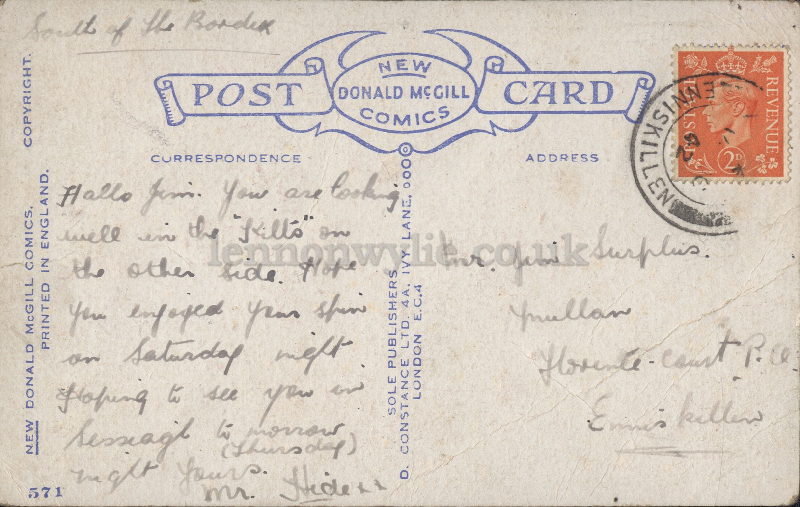 South of the Border
POST CARD
NEW
DONALD McGILL
COMICS
CORRESPONDENCE
ADDRESS
REVENUE
2D
ENNISKILLEN
Hallo Jim. You are looking
well in the "Kilts" on
the other side. Hope
you enjoyed your spin
on Saturday night
Hoping to see you in
to morrow
(Thursday)
night Yours.
Mr. Hide xx
Mr. Jim Surplus.
Mullan
Florence-court P.O.
Enniskillen
lennonwylie.co.uk
NEW DONALD McGILL COMICS. COPYRIGHT.
PRINTED IN ENGLAND.
571
SOLE PUBLISHERS
D. CONSTANCE LTD. 4A, IVY LANE,
LONDON E.C.4